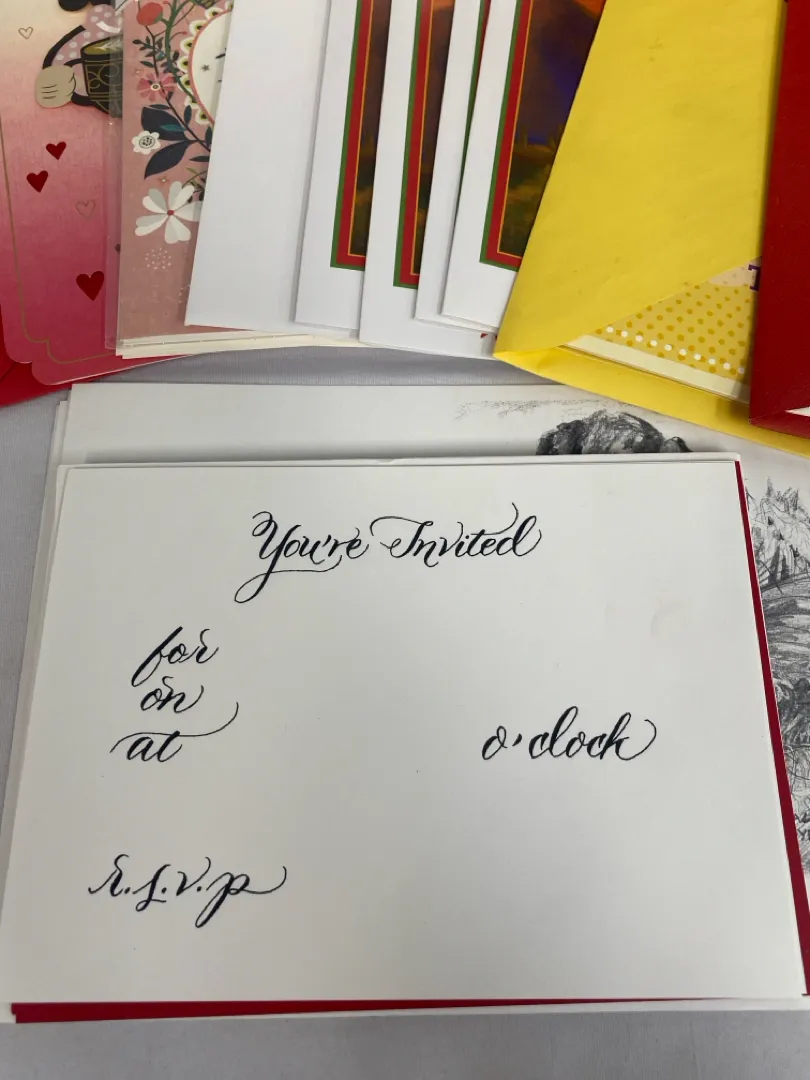 You're Invited
for
on
at o'clock
r.s.v.p